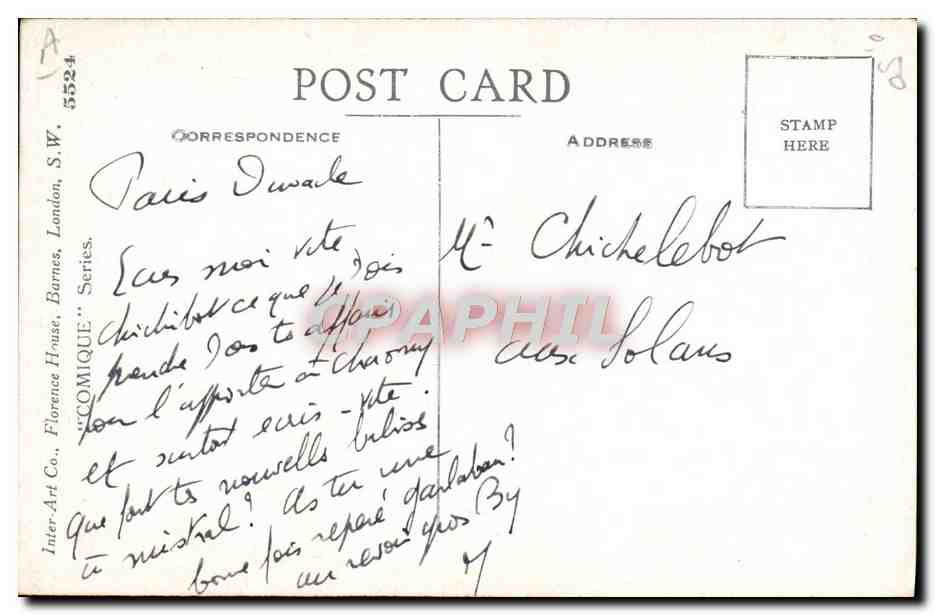 POST CARD
CORRESPONDENCE
ADDRESS
STAMP
HERE
Inter-Art Co., Florence House, Barnes, London, S.W.
"COMIQUE" Series.
5524
A
Paris
Ecris moi vite
chichibot ce que je dois
prendre dans tes affaires
pour l'apporter à
et surtout ecris-vite.
que font tes nouvelles
mistral? As tu une
bonne fois reparé garlaban?
au revoir gros By
M
Mr Chichelebot
aux Solans
CPAPHIL